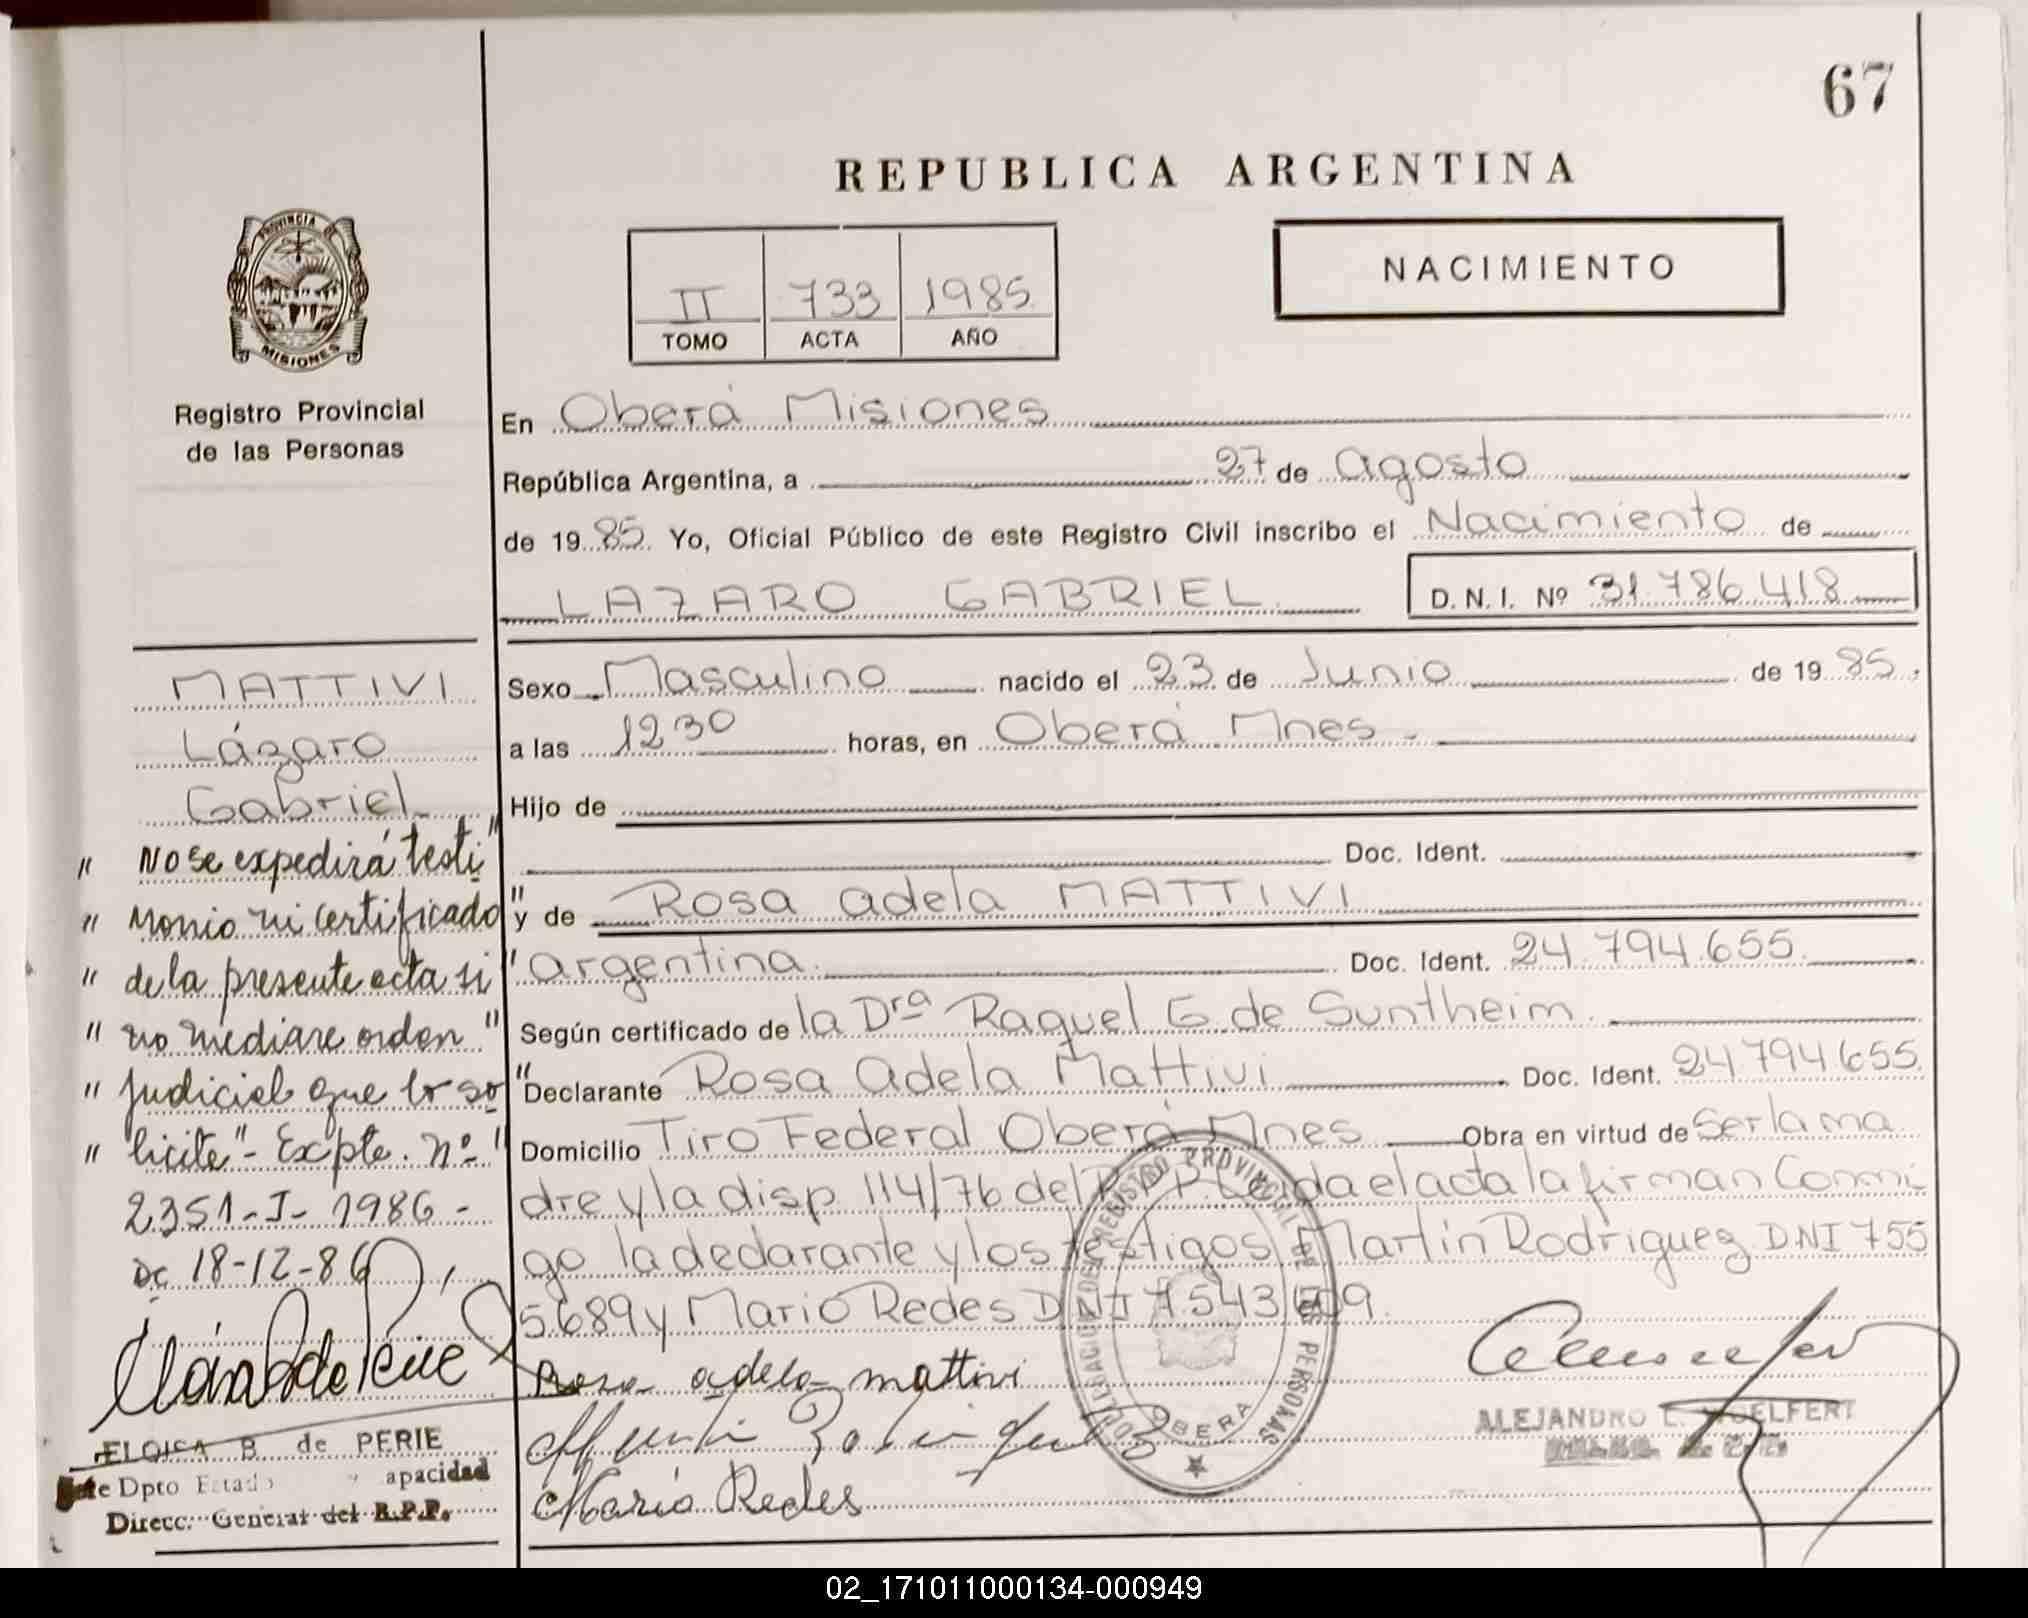 67
REPUBLICA ARGENTINA
PROVINCIA DE
MISIONES
II 733 1985
TOMO ACTA AÑO
NACIMIENTO
Registro Provincial
de las Personas
En Oberá Misiones
República Argentina, a 27 de Agosto
de 1985 Yo, Oficial Público de este Registro Civil inscribo el Nacimiento de
LAZARO GABRIEL D.N.I. Nº 31.786.418
MATTIVI
Lázaro
Gabriel
" No se expedirá testi "
" monio ni certificado "
" de la presente acta si "
" no mediare orden "
" Judicial que lo so "
" licite" - Expte. Nº "
2351-I-1986-
De 18-12-86
ELOISA B. de PERIE
Dpto Estado y apacidad
Direcc. General del R.P.P.
Sexo Masculino nacido el 23 de Junio de 1985.
a las 12 30 horas, en Oberá Mnes.
Hijo de
Doc. Ident.
y de Rosa Adela MATTIVI
Argentina. Doc. Ident. 24.794.655.
Según certificado de la Dra Raquel G. de Suntheim.
Declarante Rosa Adela Mattivi Doc. Ident. 24.794.655.
Domicilio Tiro Federal Oberá Mnes Obra en virtud de Ser la ma
dre y la disp. 114/76 del RPP. Leida el acta la firman Conmi
go la declarante y los testigos Martín Rodriguez DNI 755
5.689 y Mario Redes DNI 7.543.609.
Rosa adela mattivi
Mario Redes
DELEGACION DEL REGISTRO PROVINCIAL DE LAS PERSONAS
OBERA
ALEJANDRO E. WOELFERT
02_171011000134-000949